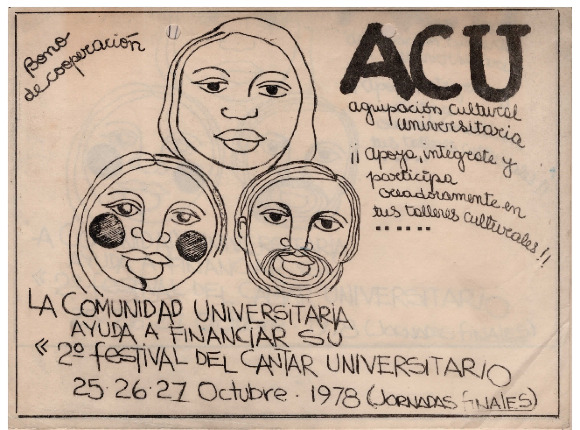 Bono
de cooperación
ACU
agrupación cultural
universitaria
¡¡ apoya, intégrate y
participa
creadoramente en
tus talleres culturales !!
......
LA COMUNIDAD UNIVERSITARIA
AYUDA A FINANCIAR SU
« 2º FESTIVAL DEL CANTAR UNIVERSITARIO
25·26·27 Octubre · 1978 (JORNADAS FINALES)